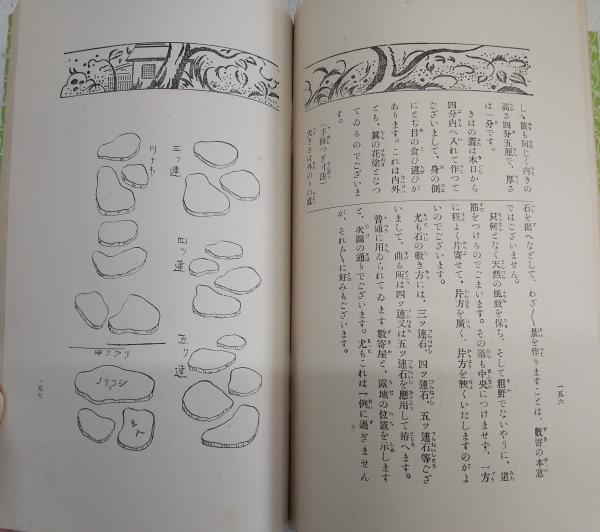 しゝ蓋も同じく内きの
高さ四分五厘で、厚さ
は一分です。
きはの蓋は木口から
四分内へ入れて作つて
ございまして、身の側
にとち目の食ひ違ひが
あります。これは内外
とも、眞の花塗となつ
てゐるのでございま
す。
(手飯つぎ寸法)
大きさは外のりの直
石を据へなどして、わざ〱景を作りますことは、數寄の本意
ではございません。
只何となく天然の風致を保ち、そして粗野でないやうに、道
筋をつけるのでございます。その道も中央につけませず、一方
に程よく片寄せて、片方を廣く、片方を狹くいたしますのがよ
いのでございます。
尤も石の敷き方には、三ツ連石、四ツ連石、五ツ連石等ござ
いまして、曲る所は四ツ連又は五ツ連石を應用して拵へます。
普通に用ゐられてゐます數寄屋と、露地の位置を示します
と、次圖の通りでございます。尤もこれは一例に過ぎません
が、それ〲に好みもございます。
一五六
三ツ連
四ツ連
五ツ連
ノリコシ
一五七